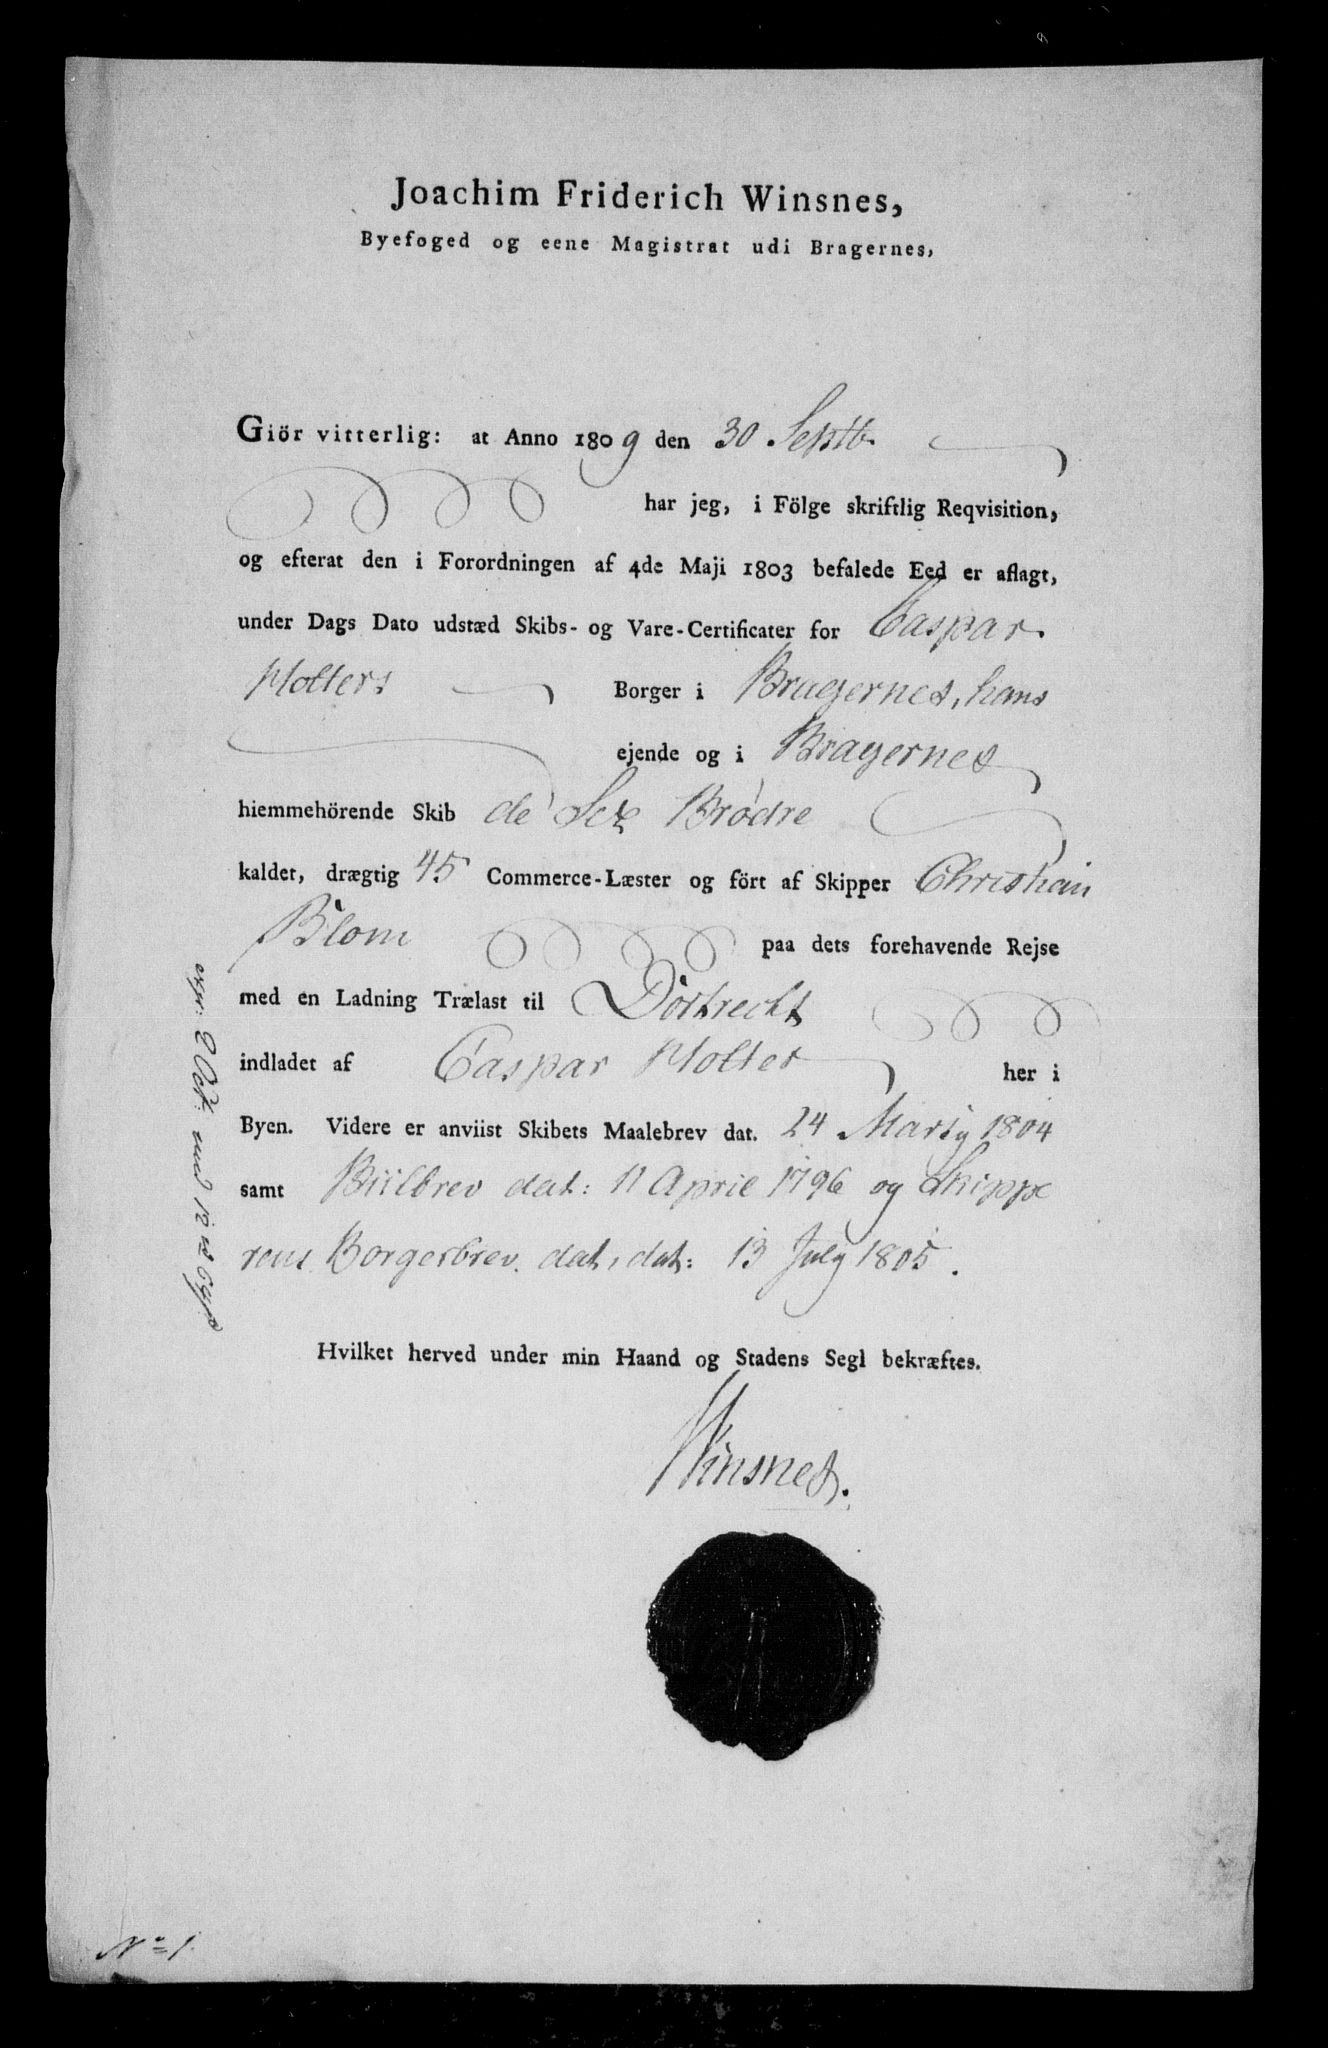 Joachim Friderich Winsnes,
Byefoged og eene Magistrat udi Bragernes,
Giör vitterlig: at Anno 1809 den 30 Septb.
har jeg, i Fölge skriftlig Reqvisition,
og efterat den i Forordningen af 4de Maji 1803 befalede Eed er aflagt,
under Dags Dato udstæd Skibs- og Vare-Certificater for Caspar
Holters Borger i Bragernes, hans
ejende og i Bragernes
hiemmehörende Skib de Sex Brødre
kaldet, drægtig 45 Commerce-Læster og fört af Skipper Christian
Blom paa dets forehavende Rejse
med en Ladning Trælast til Dortrecht
indladet af Caspar Holter her i
Byen. Videre er anviist Skibets Maalebrev dat. 24 Marty 1804
samt Biilbrev dat: 11 April 1796 og Skippe
rens Borgerbrev dat, dat: 13 July 1805.
Hvilket herved under min Haand og Stadens Segl bekræftes.
Winsnes.
expr: 2 Oct: med 12
No 1.